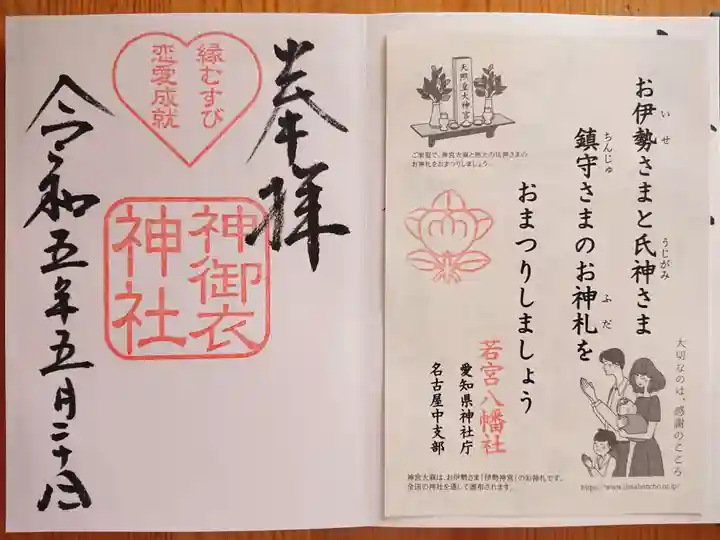 奉拝
縁むすび
恋愛成就
神御衣
神社
令和五年五月二十八日
天照皇大神宮
ご家庭で、神宮大麻と地元の氏神さまの
お神札をおまつりしましょう。
お伊勢さまと氏神さま
いせ
うじがみ
鎮守さまのお神札を
ちんじゅ
ふだ
おまつりしましょう
若宮八幡社
愛知県神社庁
名古屋中支部
大切なのは、感謝のこころ
神宮大麻は、お伊勢さま「伊勢神宮」のお神札です。
全国の神社を通して頒布されます。